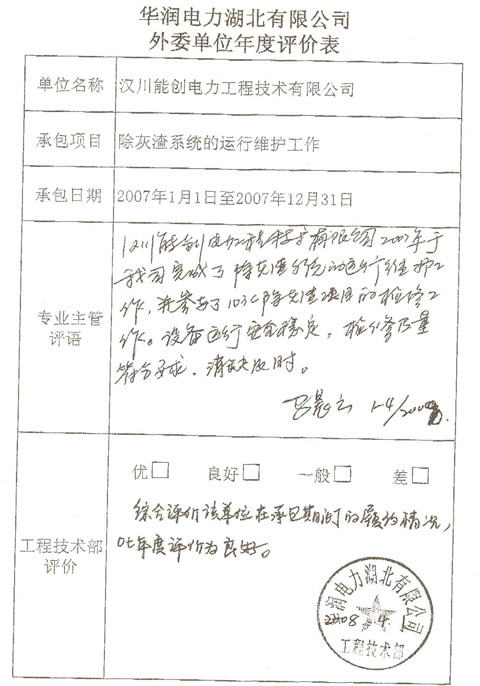 华润电力湖北有限公司
外委单位年度评价表
单位名称 汉川能创电力工程技术有限公司
承包项目 除灰渣系统的运行维护工作
承包日期 2007年1月1日至2007年12月31日
专业主管
评语
汉川能创电力工程技术有限公司2007年于
我司完成了除灰渣系统的运行维护工
作,并参与了 除灰渣项目的检修工
作。设备运行安全稳定,检修质量
符合要求,消缺及时。
1-4/2008.
优□ 良好□ 一般□ 差□
工程技术部
评价
综合评价该单位在承包期间的履约情况,
07年度评价为良好。
华润电力湖北有限公司
2008.1.4
工程技术部